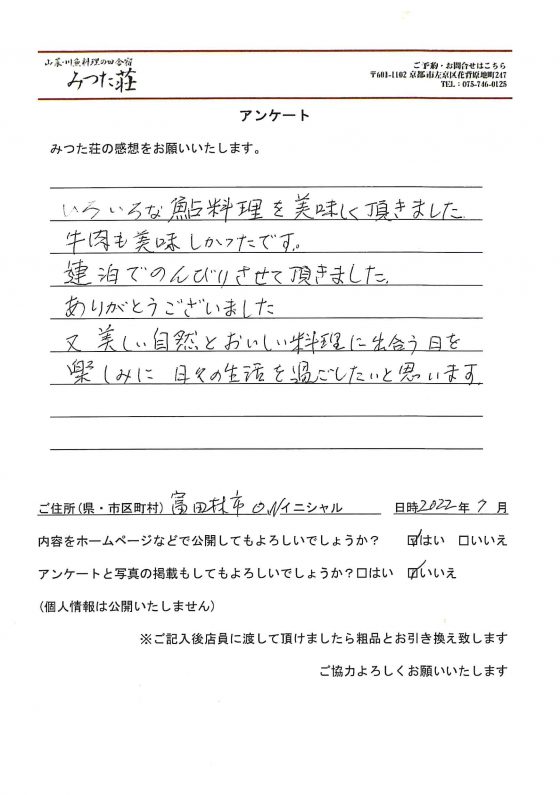 山菜・川魚料理の田舎宿
みつた荘
ご予約・お問合せはこちら
〒601-1102 京都市左京区花背原地町247
TEL：075-746-0125
アンケート
みつた荘の感想をお願いいたします。
いろいろな鮎料理を美味しく頂きました.
牛肉も美味しかったです。
連泊でのんびりさせて頂きました.
ありがとうございました
又美しい自然とおいしい料理に出合う日を
楽しみに 日々の生活を過ごしたいと思います.
ご住所(県・市区町村) 富田林市 O.N イニシャル 日時2022年 7 月
内容をホームページなどで公開してもよろしいでしょうか？ ☑はい □いいえ
アンケートと写真の掲載もしてもよろしいでしょうか？□はい ☑いいえ
(個人情報は公開いたしません)
※ご記入後店員に渡して頂けましたら粗品とお引き換え致します
ご協力よろしくお願いいたします